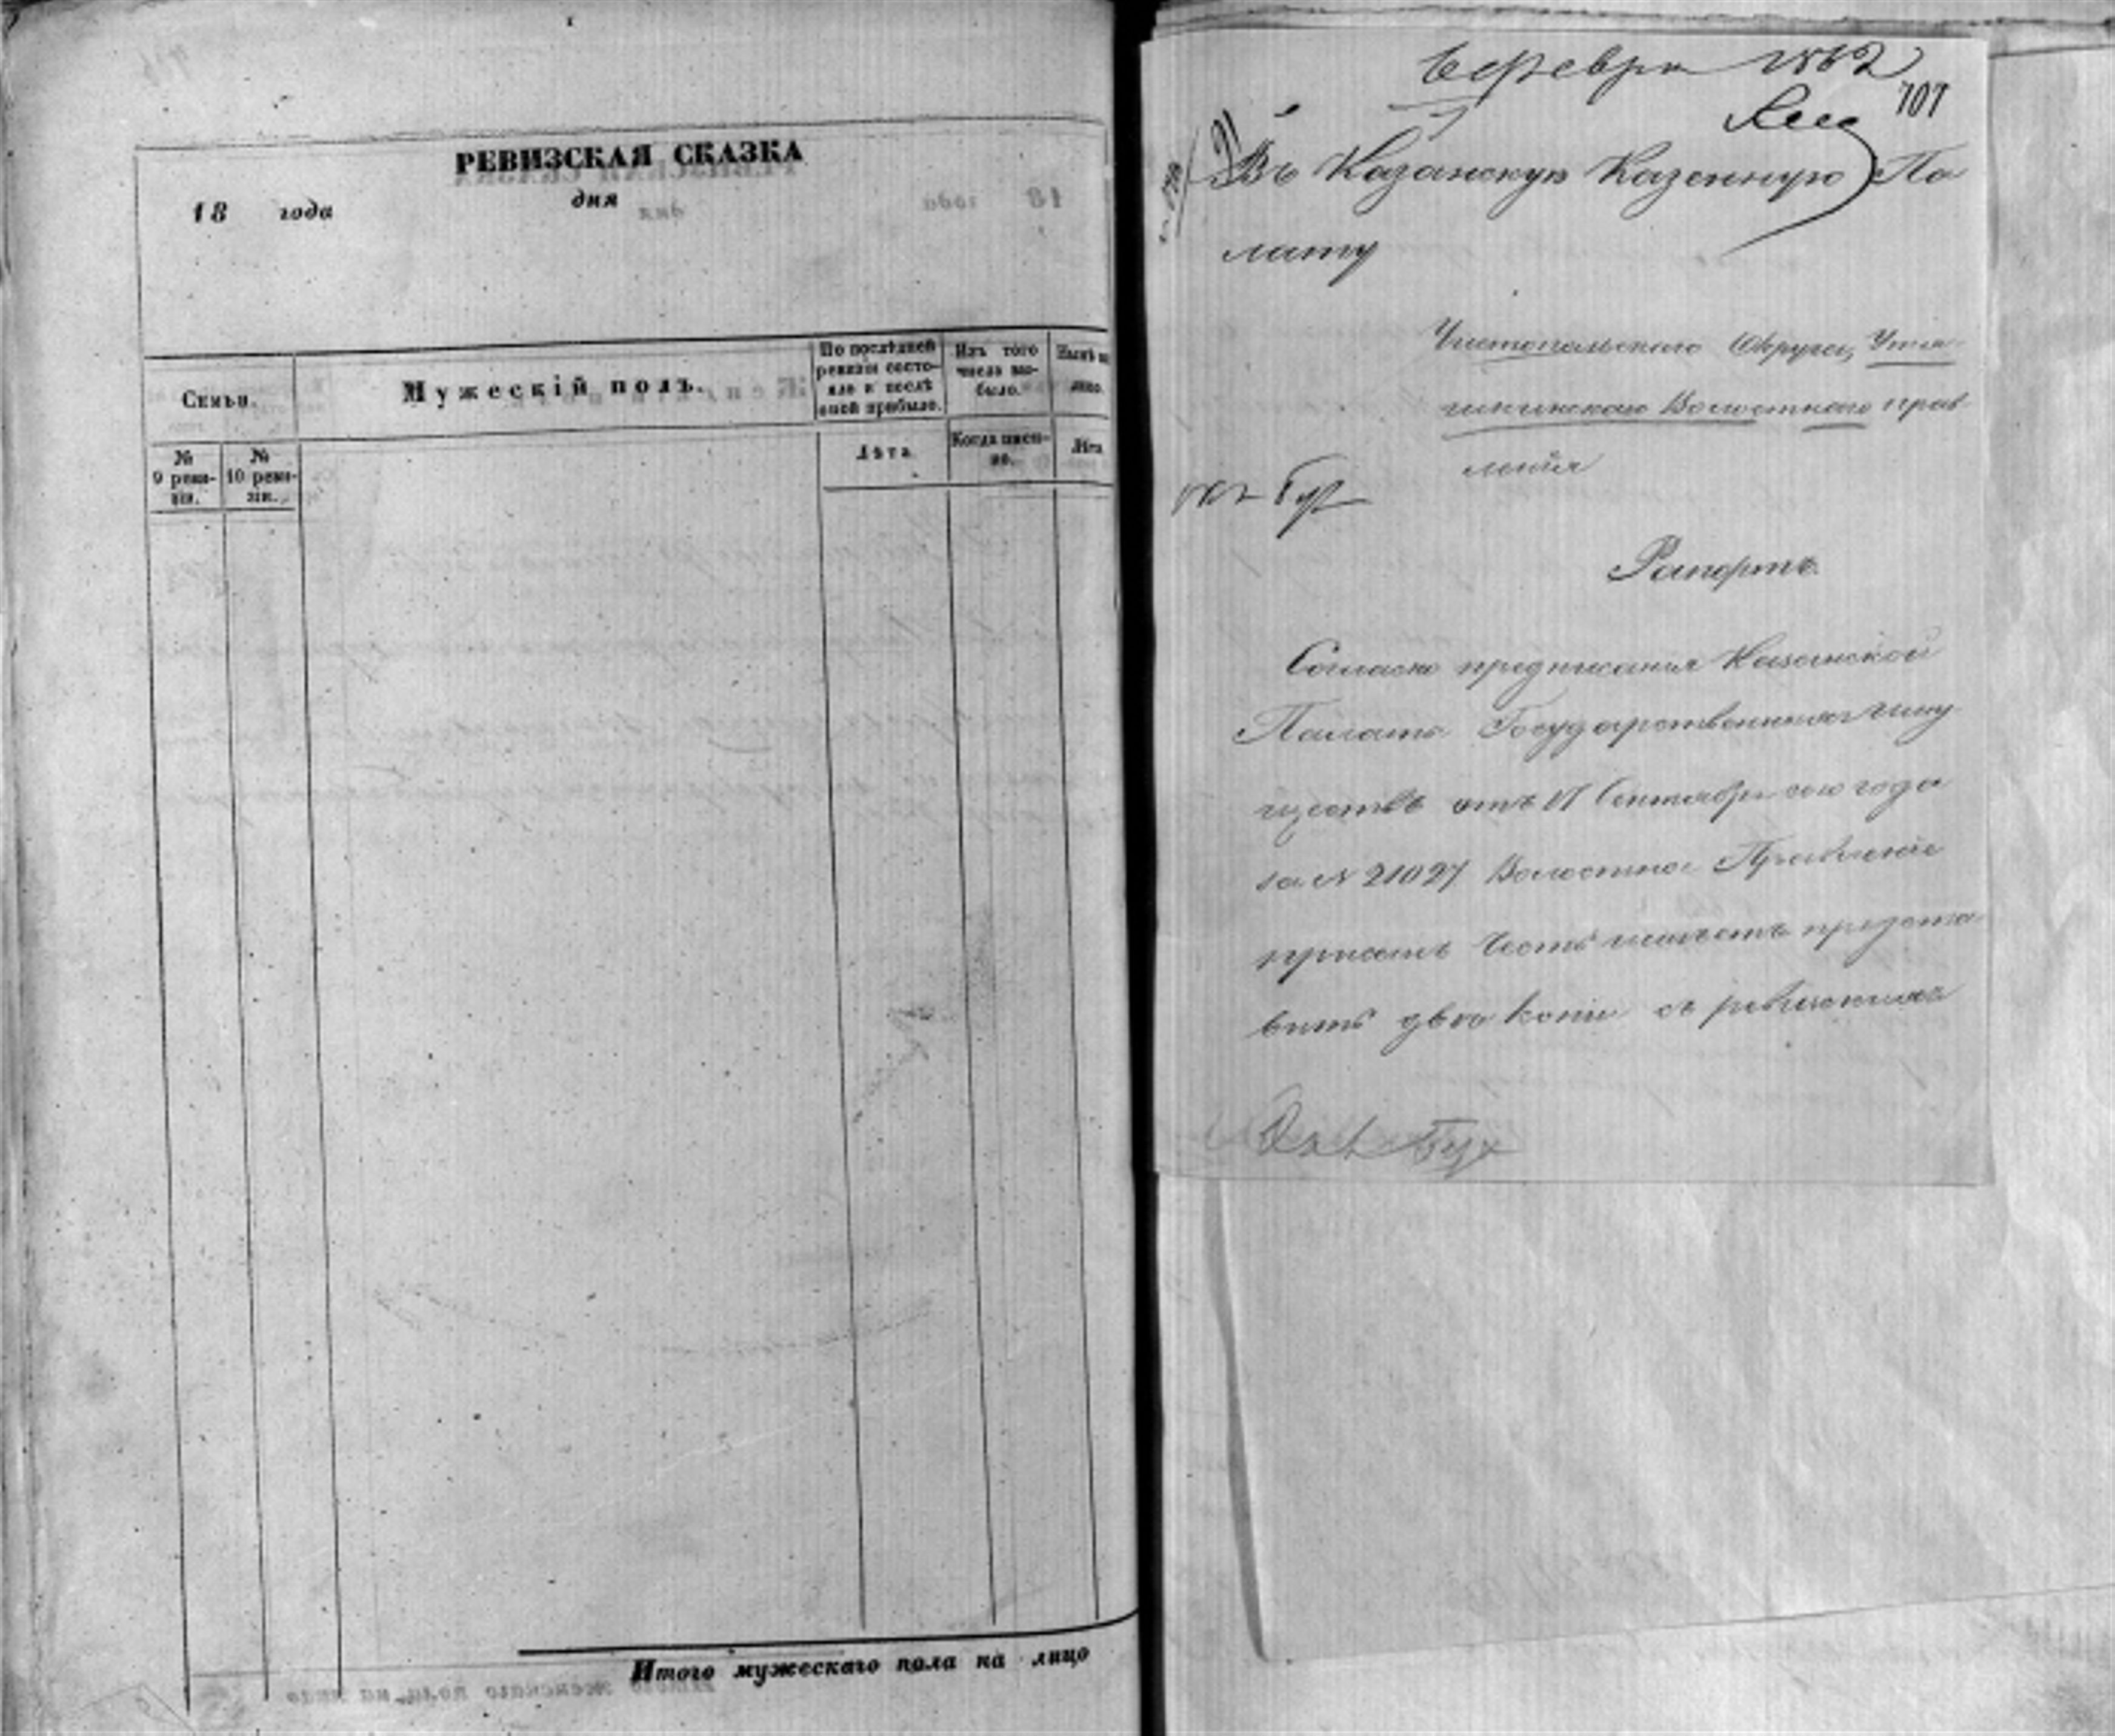 РЕВИЗСКАЯ СКАЗКА
18 года дня
Семьи.
Мужескій полъ.
По послѣдней ревизіи состояло и послѣ оной прибыло.
Изъ того числа выбыло.
Нынѣ на лицо.
№ 9 ревизіи.
№ 10 ревизіи.
Лѣта
Когда именно.
Лѣта
Итого мужескаго пола на лицо
6 Февра 1862
707
Въ Казанскую Казенную Па
лату
Чистопольскаго Округа,
Волостнаго Прав
ленія
Рапортъ.
Согласно предписанія Казанской
Палаты Государственныхъ Иму
ществъ отъ Сентября сего года
за № 21027 Волостное Правленіе
честь имѣетъ предста
вить двѣ копіи съ ревизскихъ